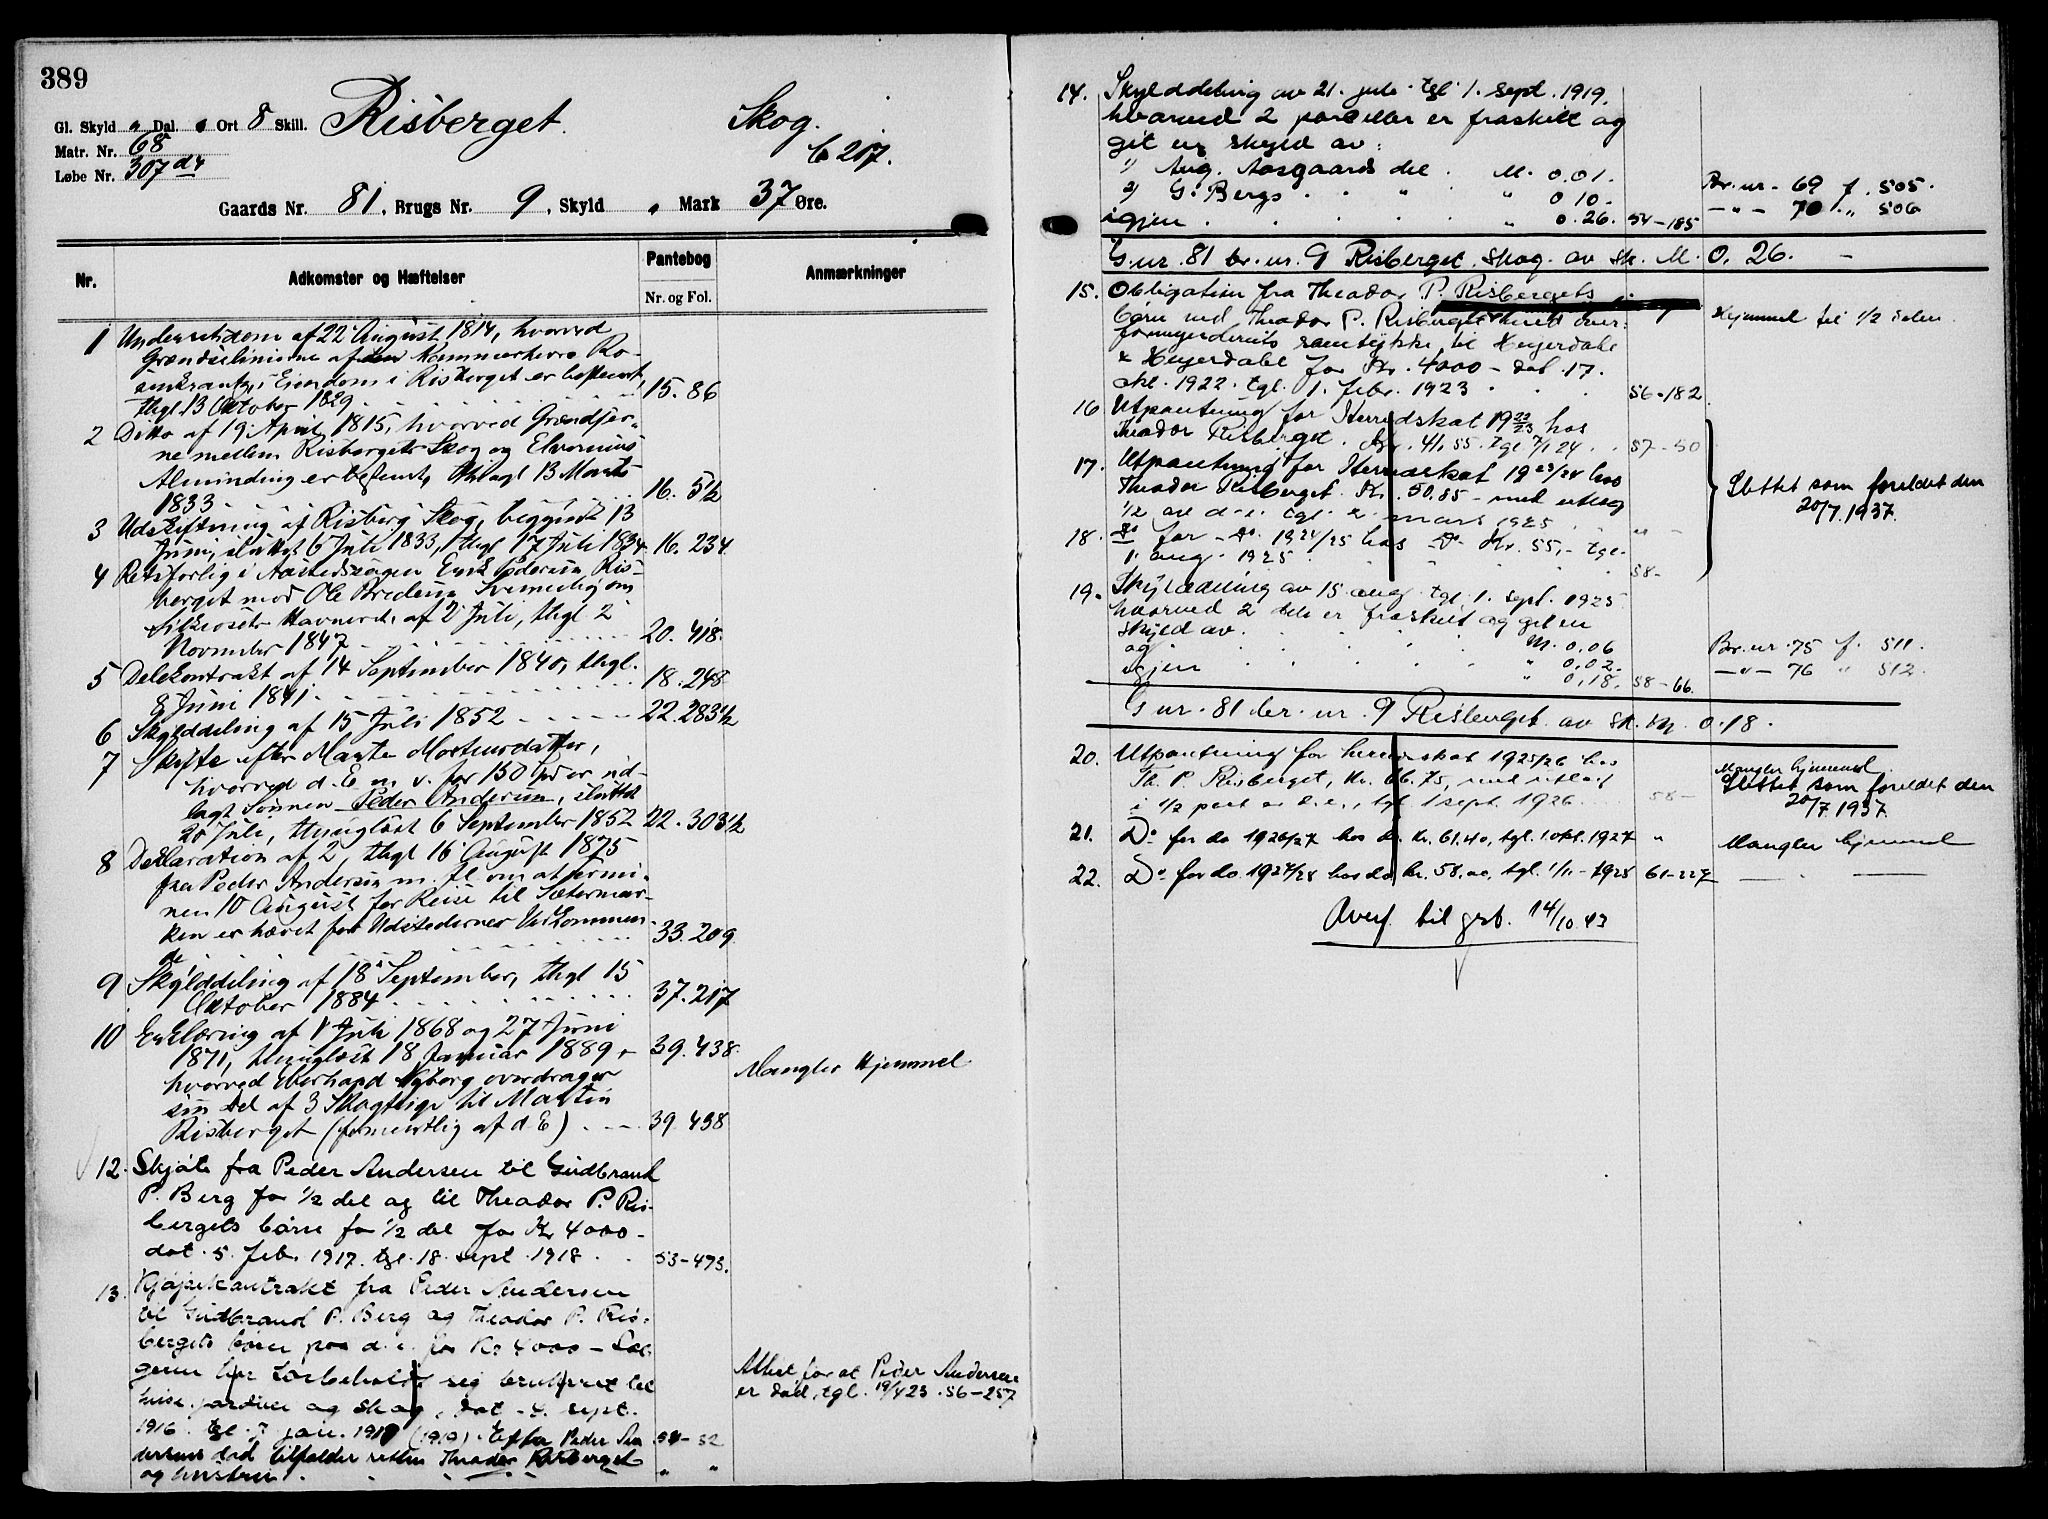 389
Gl. Skyld " Dal. " Ort 8 Skill. Risberget Skog.
Matr. Nr. 68 b 217.
Løbe Nr. 307 d4
Gaards Nr. 81, Brugs Nr. 9, Skyld " Mark 37 Øre.
Nr. Adkomster og Hæftelser Pantebog Anmærkninger
Nr. og Fol.
1 Underretsdom af 22 August 1814, hvorved
Grændselinierne af den Kammerherre Ro-
senkrantz's Eiendom i Risberget er bestemt,
thgl. 13 Oktober 1829 15. 86
2 Ditto af 19 April 1815, hvorved Grændser-
ne mellem Risbergets Skog og Elverums
Alminding er bestemt, thlagl 13 Marts
1833 16. 5½
3 Udskiftning af Risberg Skog, begyndt 13
Juni, sluttet 6 Juli 1833, thgl 17 Juli 1834 16. 234
4 Retsforlig i Aastedssagen Erik Pedersen Ris-
berget mod Ole Bredesen Svenneby om
Havneret, af 2 Juli, thgl 2
November 1847 20. 418.
5 Delekontrakt af 14 September 1840, thgl.
8 Juni 1841. 18. 248
6 Skylddeling af 15 Juli 1852 22. 283½
7 Skifte efter Marte Mortensdatter,
hvorved d. E. m. v. for 150 Spd er ud-
lagt Sønnen Peder Andersen, sluttet
20 Juli, thinglæst 6 September 1852 22. 303½
8 Deklaration af 2, thgl 16 August 1875
fra Peder Andersen m. fl. om at termi-
nen 10 August for Reise til Sætermar-
ken er hævet for Udstederners Vedkommen-
de 33. 209
9 Skylddeling af 18 September, thgl 15
Oktober 1884 37. 217
10 Erklæring af 1 Juli 1868 og 27 Juni
1871, thinglæst 18 Januar 1889, 39. 438.
hvorved Eberhard Nyborg overdrager Mangler Hjemmel
sin Del af 3 Skogteige til Martin
Risberget (formentlig af d. E) 39. 438
12. Skjøte fra Peder Andersen til Gudbrand
P. Berg for ½ del og til Theodor P. Ris-
bergets børn for ½ del for Kr 4000 -
dat. 5. febr. 1917. tgl. 18. sept. 1918. 53-493.
13. Kjøpekontrakt fra Peder Andersen
til Gudbrand P. Berg og Theodor P. Ris-
bergets børn paa d. e. for Kr 4000 - Sæl-
geren har forbeholdt sig bruksret til Attest for at Peder Andersen
huse, jordvei og skog, dat. 4. sept. er død, tgl. 19/4 23. 56-257
1916. tgl. 7 jan. 1919 (1919). Efter Peder An- 54-52
dersens død tilfalder retten Theodor Risberget
og hustru " "
14. Skylddeling av 21. juli tgl 1. sept. 1919.
hvorved 2 parceller er fraskilt og
git en skyld av:
1) Aug. Aasgaards del. M. 0.01. Br. nr. 69 f. 505.
2) G. Bergs " " 0 10 - -"- 70 f. " 506
igjen " 0.26. 54-185
G. nr. 81 br. nr. 9 Risberget. Skog. av sk. M. 0.26. -
15. Obligation fra Theodor P. Risbergets
børn ved Theodor P. Risberget med over- Hjemmel til ½ delen.
formynderiets samtykke til Heyerdahl
& Heyerdahl for Kr. 4000 - dat 17.
okt. 1922. tgl. 1. febr. 1923 56-182
16 Utpantning for Herredskat 1922/23 hos
Theodor Risberget. Kr. 41,55. tgl 7/1 24 57-50
17. Utpantning for Herredskat 1923/24 hos
Theodor Risberget. Kr. 50.85 - med utlæg Slettet som foreldet den
½ av d. e. tgl. 2. mars 1925 " - 20/7 1937.
18. Do for - Do. 1924/25 hos Do Kr. 55,- tgl.
1. aug. 1925 58-
19. Skylddeling av 15. aug. tgl. 1. sept. 1925
hvorved 2 dele er fraskilt og git en
skyld av. M. 0.06 Br. nr. 75 f. 511.
og " 0,02. -"- 76 " 512.
igjen " 0,18. 58-66.
G nr. 81 br. nr. 9 Risberget. av sk. M. 0.18.
20. Utpantning for herredskat 1925/26 hos Mangler hjemmel
Th. P. Risberget, Kr. 66.75, med utlæg Slettet som foreldet den
i ½ part av d. e., tgl. 1 sept. 1926. 58- 20/7 1937.
21. Do for do 1926/27 hos do Kr. 61.40, tgl. 1 okt. 1927 " Mangler hjemmel
22. Do for do. 1927/28 hos do Kr. 58.00, tgl. 1/11 - 1928 61-227 — " —
Overf. til grb. 14/10 43